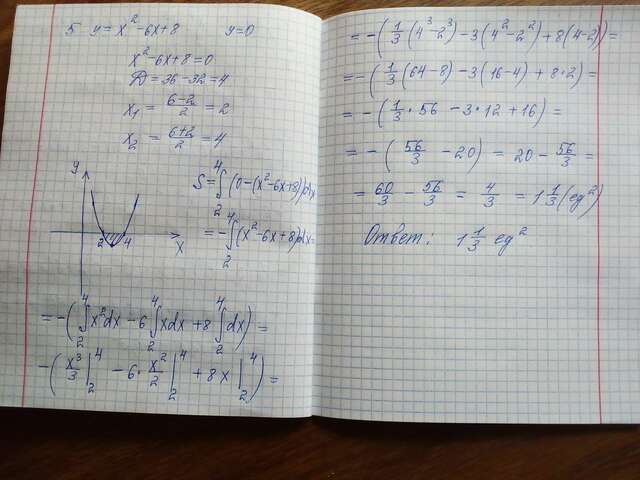 5 y = x² - 6x + 8 y = 0
x² - 6x + 8 = 0
D = 36 - 32 = 4
x₁ = (6-2)/2 = 2
x₂ = (6+2)/2 = 4
y
2 4 x
S = ∫₂⁴ (0 - (x² - 6x + 8)) dx
= - ∫₂⁴ (x² - 6x + 8) dx =
= - ( ∫₂⁴ x² dx - 6 ∫₂⁴ x dx + 8 ∫₂⁴ dx ) =
- ( x³/3 |₂⁴ - 6 · x²/2 |₂⁴ + 8x |₂⁴ ) =
= - ( 1/3 (4³ - 2³) - 3 (4² - 2²) + 8 (4-2) ) =
= - ( 1/3 (64 - 8) - 3 (16 - 4) + 8 · 2 ) =
= - ( 1/3 · 56 - 3 · 12 + 16 ) =
= - ( 56/3 - 20 ) = 20 - 56/3 =
= 60/3 - 56/3 = 4/3 = 1 1/3 (ед²)
Ответ: 1 1/3 ед²